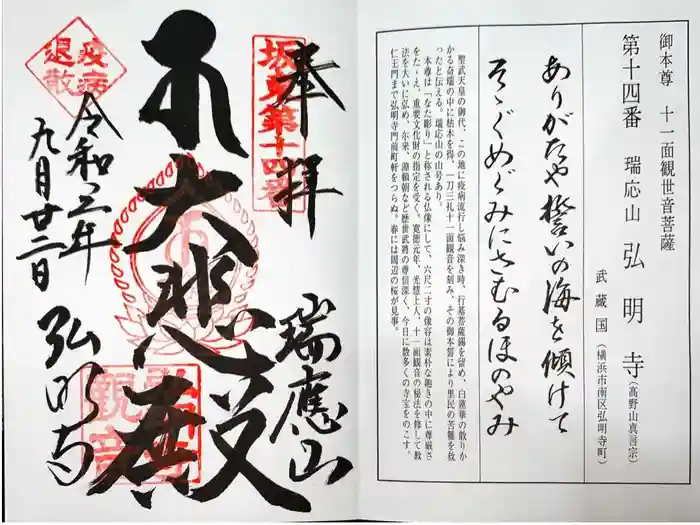 御本尊 十一面観世音菩薩
第十四番 瑞応山 弘明寺(高野山真言宗)
武蔵国(横浜市南区弘明寺町)
ありがたや誓いの海を傾けて
そゝぐめぐみにさむるほのやみ
聖武天皇の御代、この地に疫病流行し悩み深き時、行基菩薩錫を留め、白蓮華の散りか
かる奇瑞の中に枯本を得、一刀三礼十一面観音を刻み、その御本誓により里民の苦難を救
ったと伝える。瑞応山の山号あり。
本尊は「なた彫り」と称される仏像にして、六尺二寸の像容は素朴な趣きの中に尊厳さ
をたゝえ、重要文化財の指定を受く。寛徳元年、光慧上人、十一面観音の秘法を修して教
法を大いに弘め、尓来、源頼朝など歴世武将の尊信深く、今日に数多くの寺宝をのこす。
仁王門まで弘明寺門前町軒をつらぬ。春には周辺の桜が見事。
奉拝
坂東第十四番
瑞應山
大悲殿
疫病
退散
令和二年
九月廿二日
弘明寺